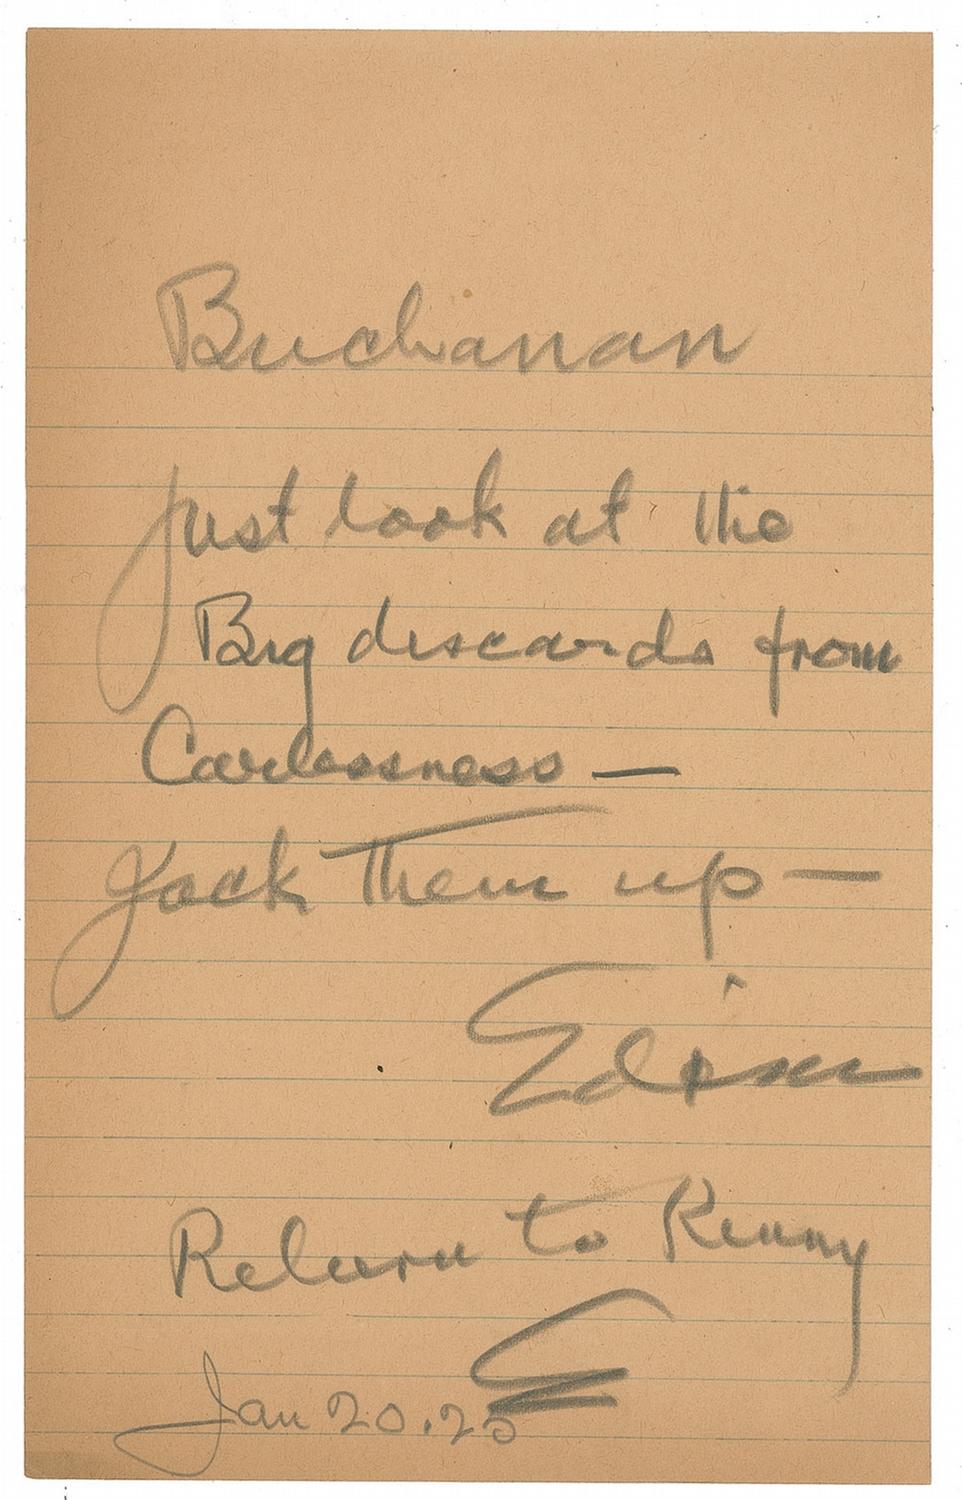 Buchanan
just look at the
Big discards from
Carlessness —
Jack Them up —
Edison
Return to Kenny
E
Jan 20.25